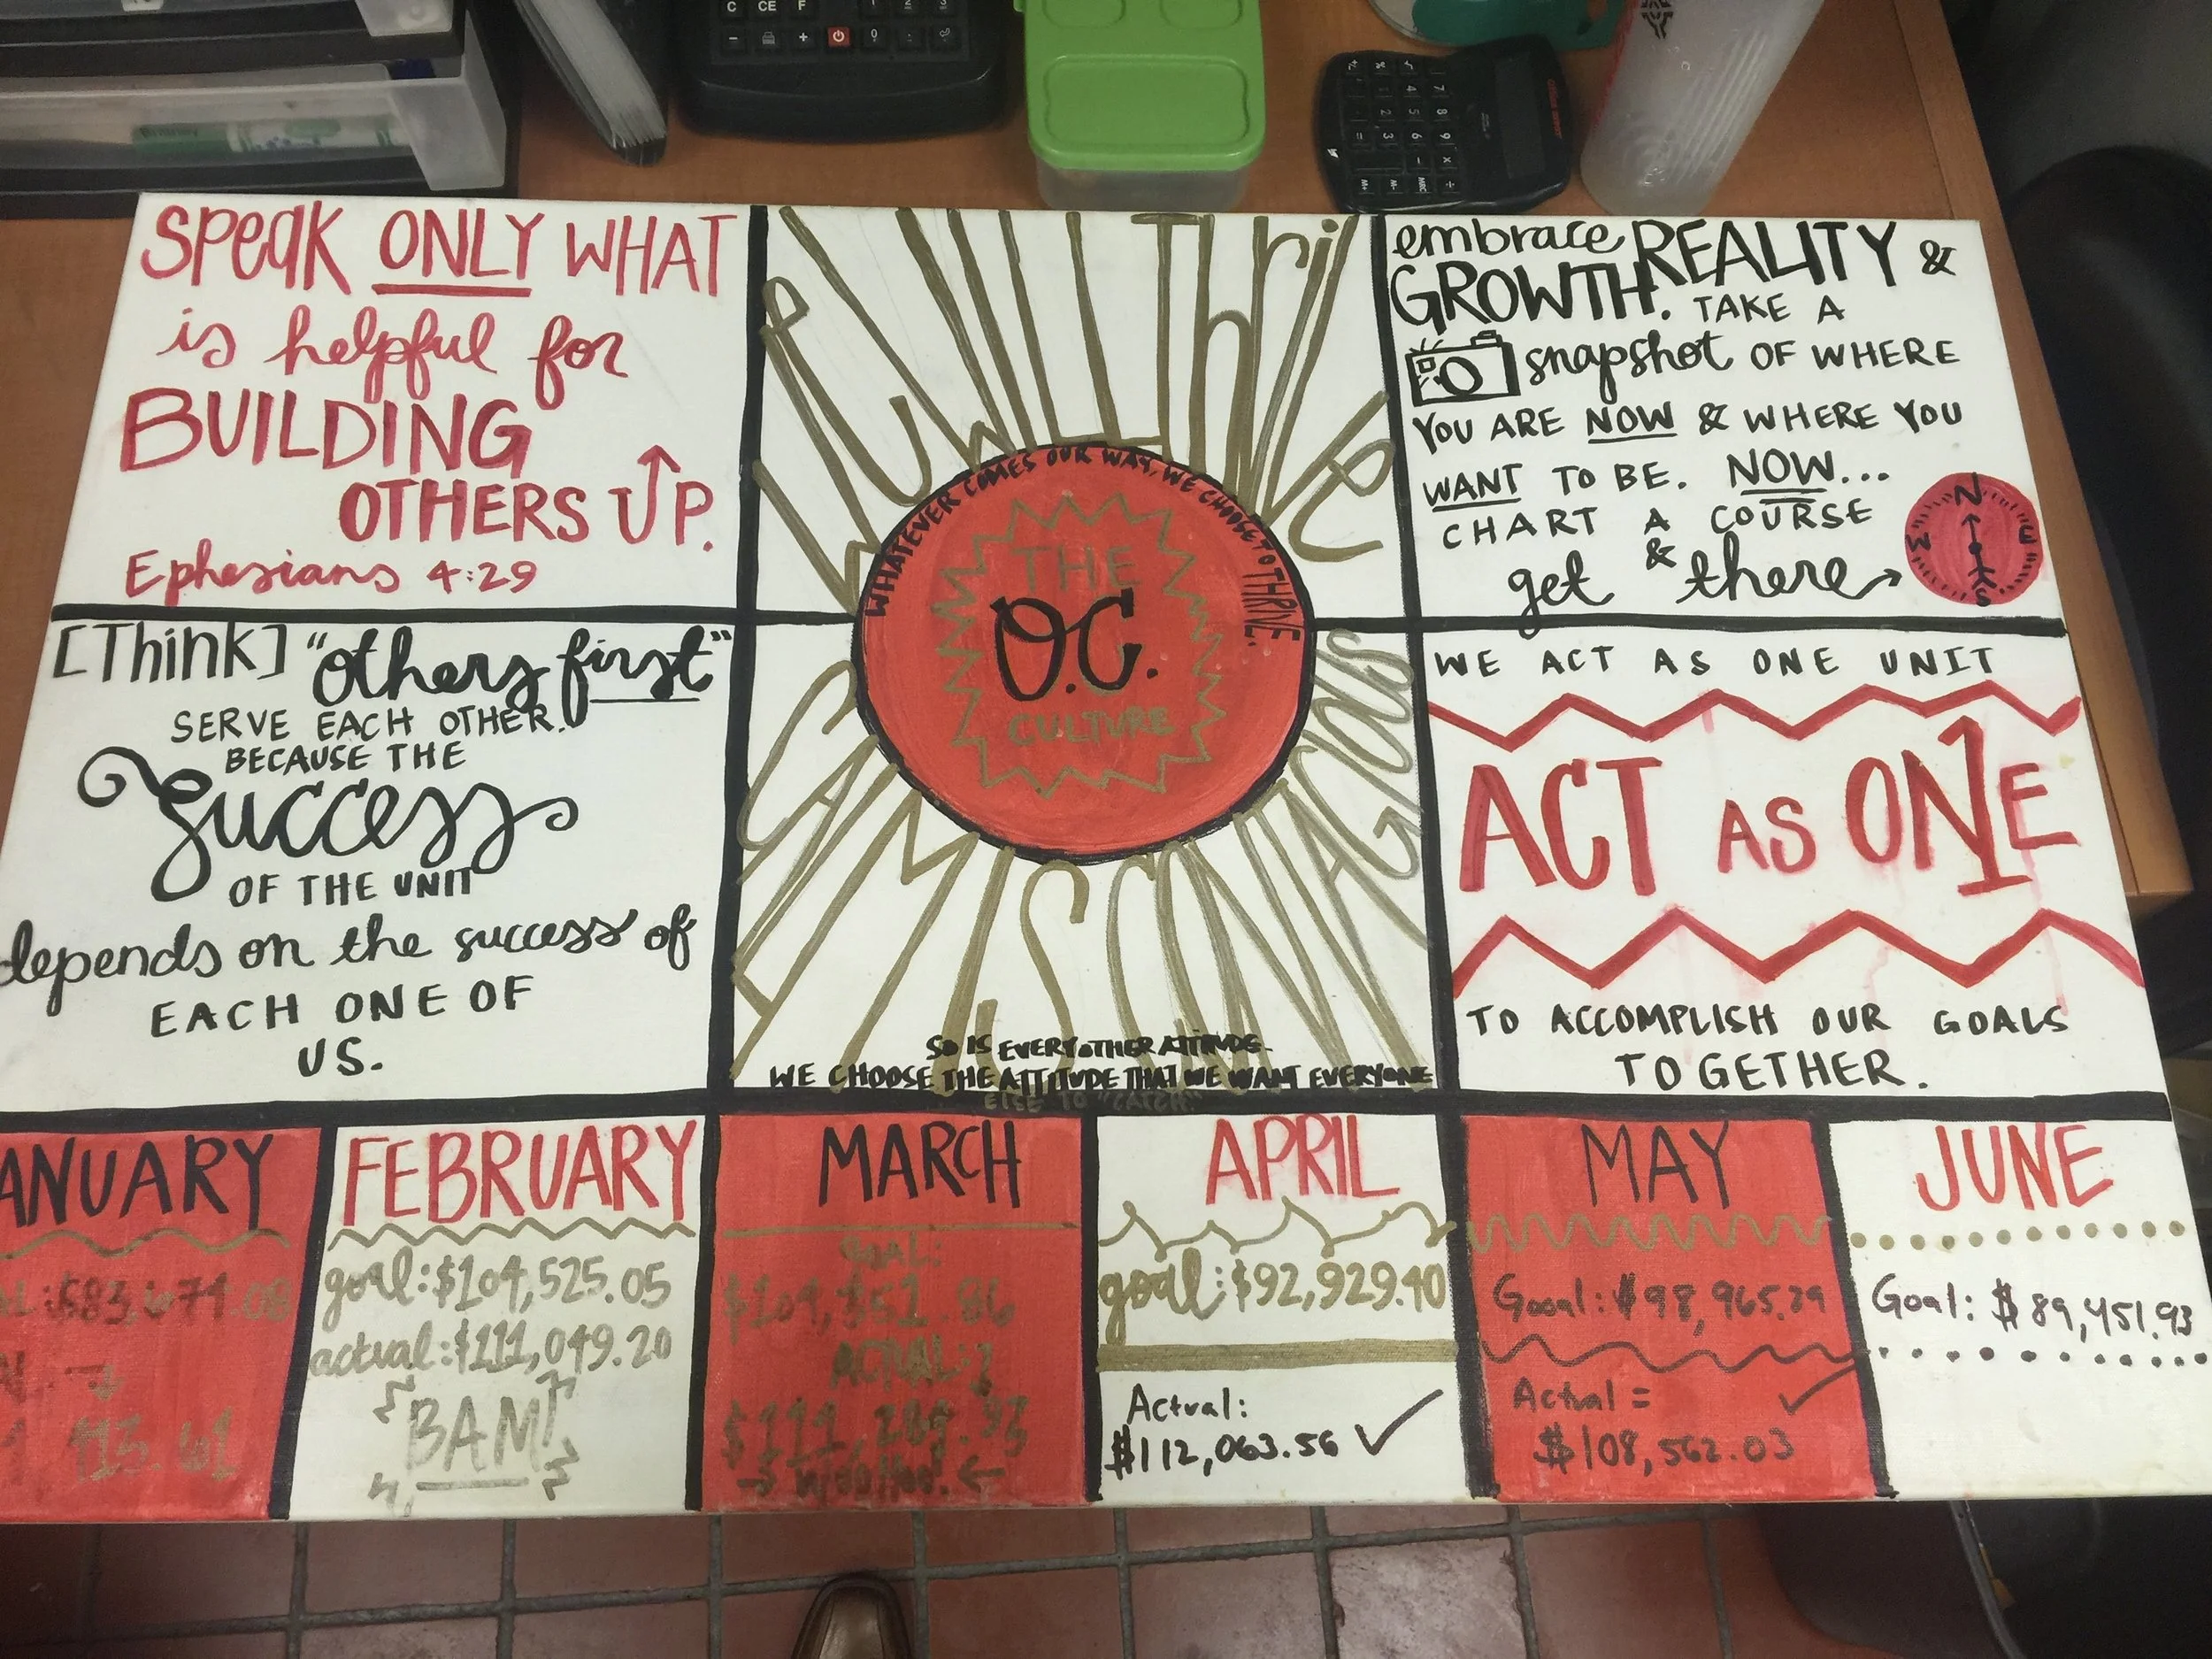 SPEAK ONLY WHAT
is helpful for
BUILDING
OTHERS UP.
Ephesians 4:29
WE WILL THRIVE
WHATEVER COMES OUR WAY, WE CHOOSE TO THRIVE.
THE
O.C.
CULTURE
embrace REALITY &
GROWTH. TAKE A
snapshot OF WHERE
YOU ARE NOW & WHERE YOU
WANT TO BE. NOW...
CHART A COURSE
& get there
N
E
S
W
[Think] "others first"
SERVE EACH OTHER.
BECAUSE THE
Success
OF THE UNIT
depends on the success of
EACH ONE OF
US.
CONTAGIOUS
SO IS EVERY OTHER ATTITUDE.
WE CHOOSE THE ATTITUDE THAT WE WANT EVERYONE
ELSE TO "CATCH."
WE ACT AS ONE UNIT
ACT AS ONE
TO ACCOMPLISH OUR GOALS
TOGETHER.
ANUARY
413.61
FEBRUARY
goal: $104,525.05
actual: $111,049.20
BAM!
MARCH
GOAL:
ACTUAL:
WOO HOO!
APRIL
goal: $92,929.40
Actual:
$112,063.56
MAY
Goal: $98,965.29
Actual =
$108,562.03
JUNE
Goal: $89,451.93
C CE F 1 2 3
- + 0 .